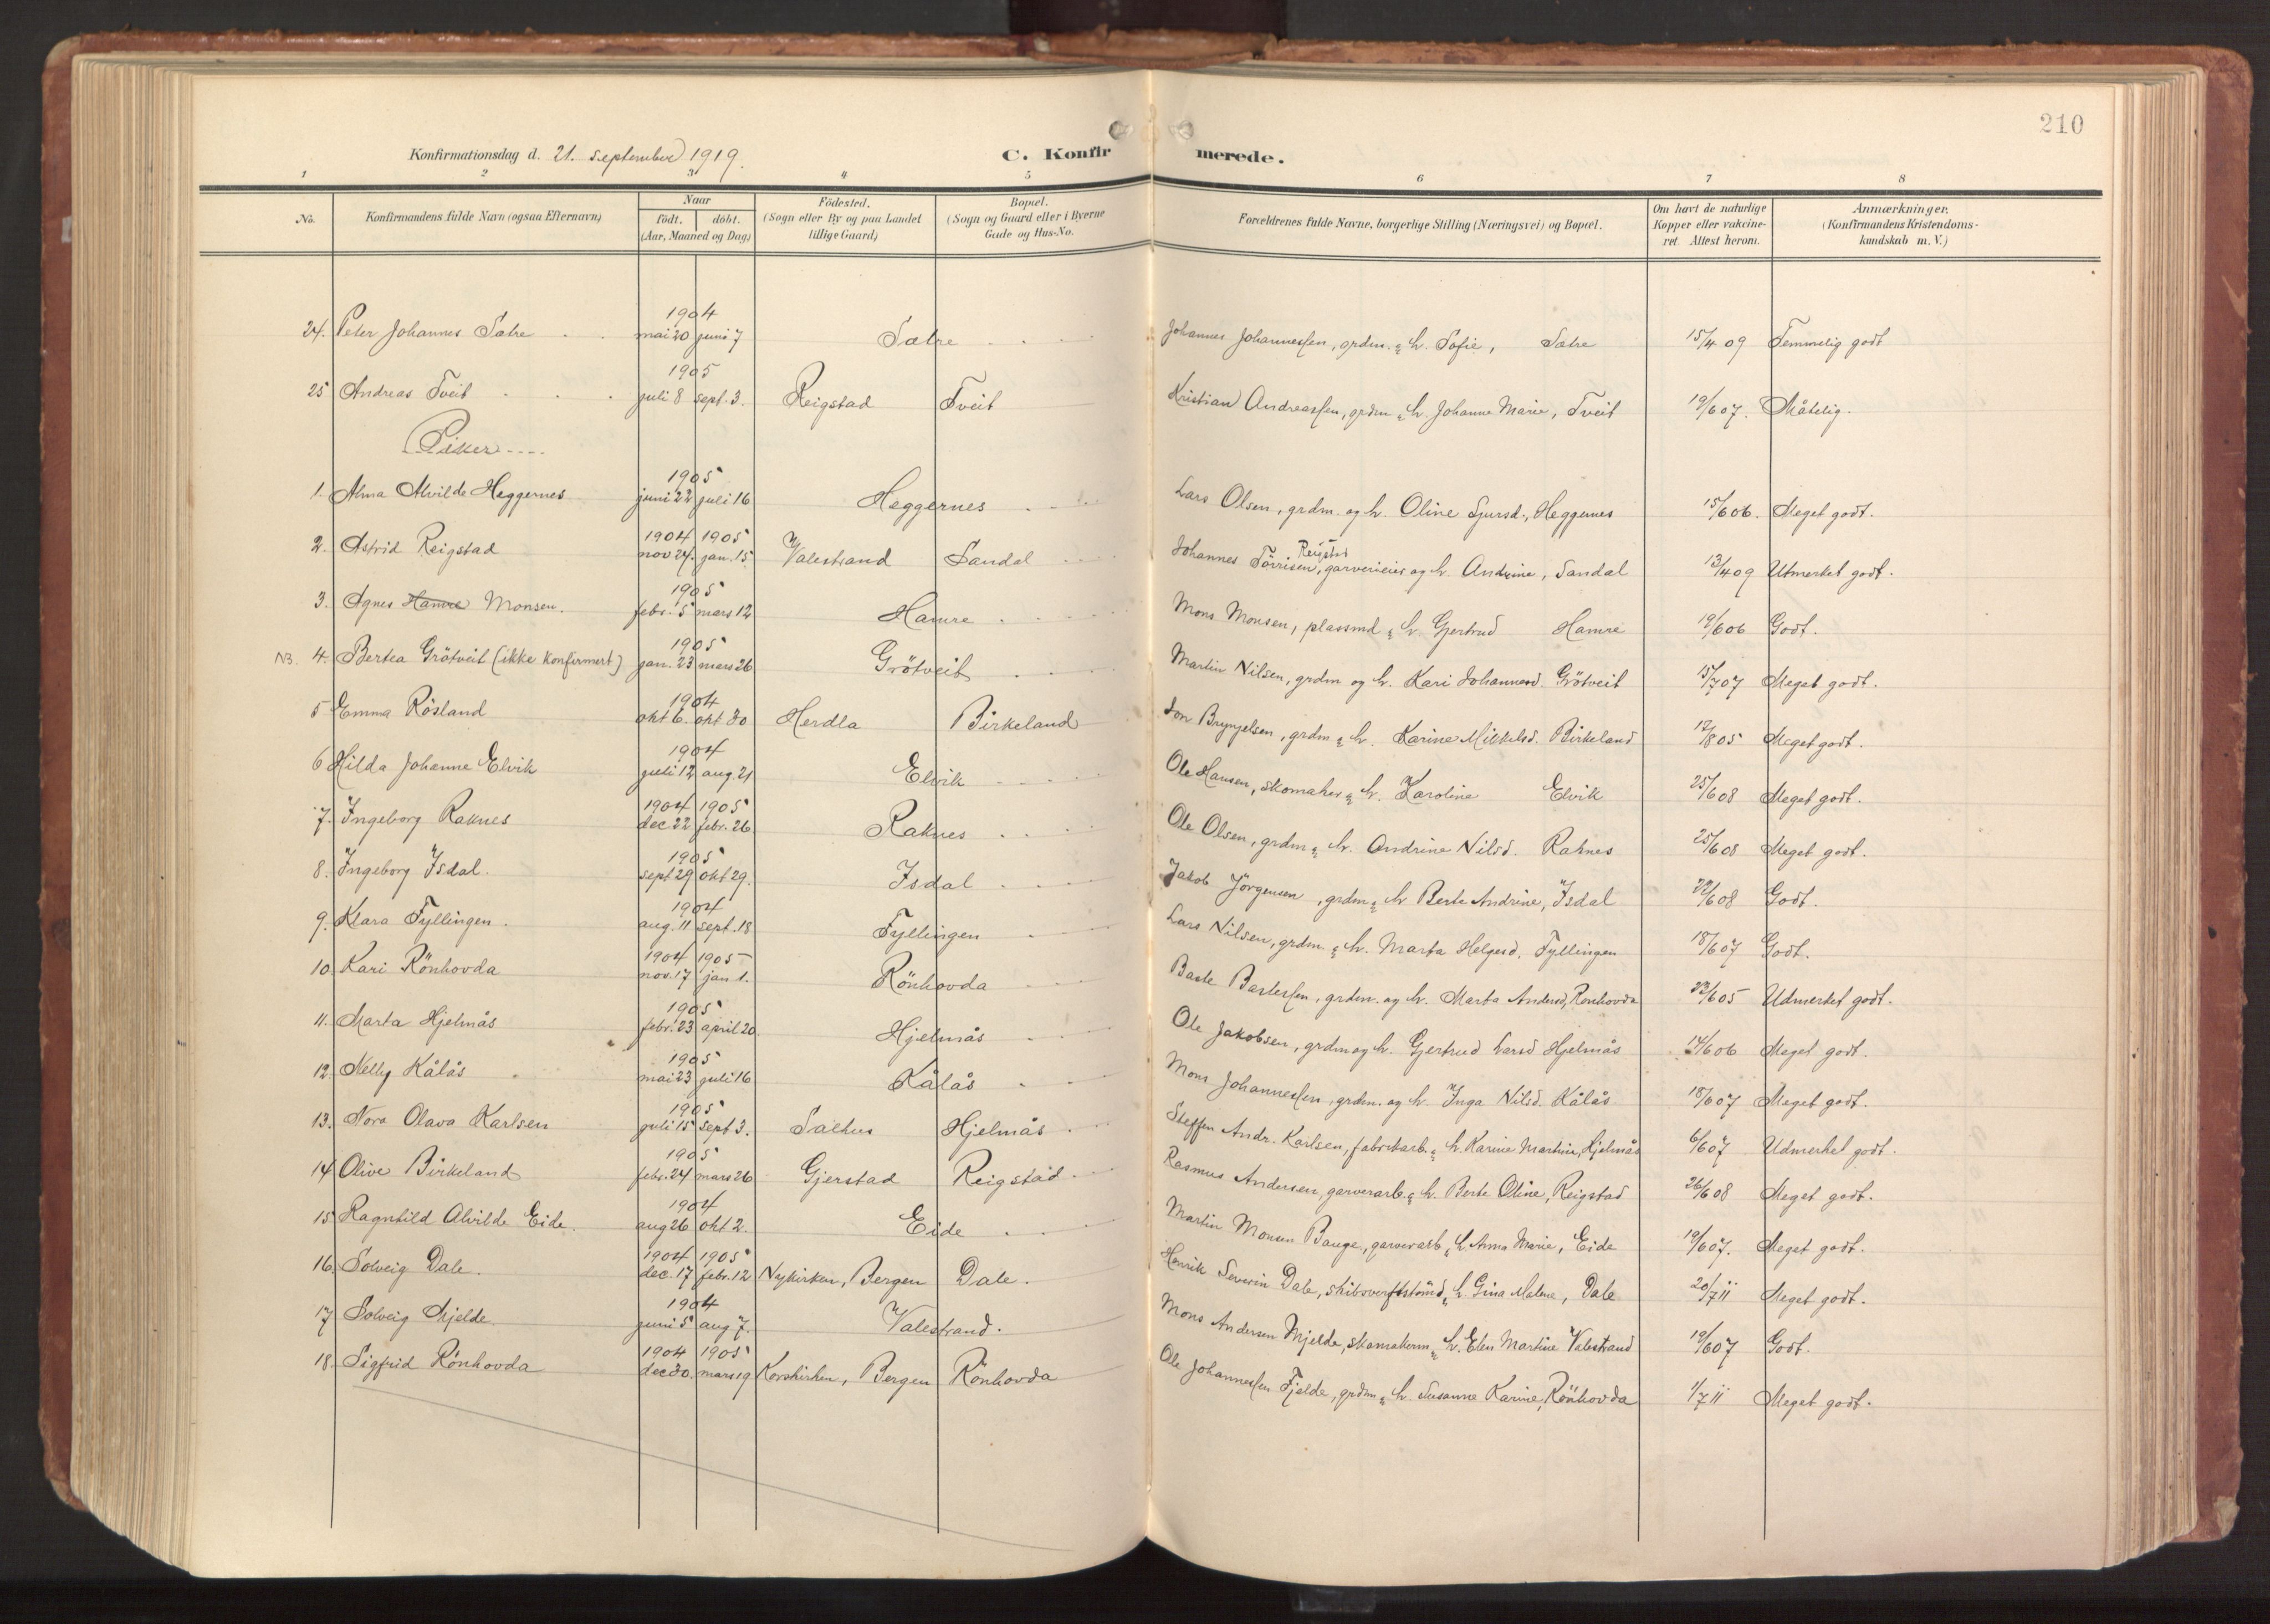 210
Konfirmationsdag d. 21. september 1919.
C. Konfirmerede.
1 2 3 4 5 6 7 8
No. Konfirmandens fulde Navn (ogsaa Efternavn) Naar født. døbt. (Aar, Maaned og Dag) Fødested. (Sogn eller By og paa Landet tillige Gaard) Bopæl. (Sogn og Gaard eller i Byerne Gade og Hus-No. Forældrenes fulde Navne, borgerlige Stilling (Næringsvei) og Bopæl. Om havt de naturlige Kopper eller vakcineret. Attest herom. Anmærkninger. (Konfirmandens Kristendomskundskab m. V.)
1904
24. Peter Johannes Sætre mai 20 juni 7 Sætre Johannes Johannessen, grdm. & h. Sofie, Sætre 15/4 09 Temmelig godt
1905
25 Andreas Tveit juli 8 sept. 3. Reigstad Tveit Kristian Andreassen, grdm & h. Johanne Marie, Tveit 19/6 07. Måtelig.
Piker
1905
1. Alma Alvilde Heggernes juni 22 juli 16 Heggernes Lars Olsen, grdm. og h. Oline Sjursd., Heggernes 15/6 06. Meget godt.
1904 1905 Reigstad
2. Astrid Reigstad nov 24. jan. 15 Valestrand Sandal Johannes Törrisen, garverieier og h. Andrine, Sandal 13/4 09 Utmerket godt.
1905
3. Agnes Hamre Monsen. febr. 5 mars 12 Hamre Mons Monsen, plassmd & h. Gjertrud Hamre 19/6 06 Godt.
1905
NB. 4. Bertea Grötveit (ikke konfirmert) jan. 23 mars 26 Grötveit Martin Nilsen, grdm og h. Kari Johannesd. Grötveit 15/7 07 Meget godt.
1904
5 Emma Rösland okt 6. okt 30 Herdla Birkeland Jon Brynjelsen, grdm & h. Karine Mikkelsd. Birkeland 12/8 05 Meget godt.
1904
6 Hilda Johanne Elvik juli 12 aug. 21 Elvik Ole Hansen, skomaker & h. Karoline Elvik 25/6 08 Meget godt.
1904 1905
7. Ingeborg Raknes dec 22 febr. 26 Raknes Ole Olsen, grdm & h. Andrine Nilsd. Raknes 25/6 08 Meget godt.
1905
8. Ingeborg Isdal. sept 29 okt 29. Isdal Jakob Jörgensen, grdm & h Berte Andrine, Isdal 22/6 08 Godt.
1904
9. Klara Fyllingen. aug. 11 sept. 18 Fyllingen Lars Nilsen, grdm & h. Marta Helgesd. Fyllingen 18/6 07 Godt.
1904 1905
10. Kari Rönhovda nov. 17 jan 1. Rönhovda Baste Bastessen, grdm. og h. Marta Andersd, Rönhovda 22/6 05 Udmerket godt.
1905
11. Marta Hjelmås febr. 23 april 20 Hjelmås Ole Jakobsen, grdm og h. Gjertrud Larsd Hjelmås 14/6 06 Meget godt.
1905
12. Nelly Kålås mai 23 juli 16 Kålås Mons Johannessen, grdm. og h. Inga Nilsd. Kålås 18/6 07 Meget godt.
1905
13. Nora Olava Karlsen juli 15 sept 3. Salhus Hjelmås Steffen Andr. Karlsen, fabrikarb. & h. Karine Martine, Hjelmås 6/6 07 Udmerket godt.
1905
14 Olive Birkeland febr. 24 mars 26 Gjerstad Reigstad Rasmus Andersen, garverarb. & h. Berte Oline, Reigstad 26/6 08 Meget godt.
1904
15 Ragnhild Alvilde Eide. aug 26 okt 2. Eide Martin Monsen Bauge, garverarb & h. Anna Marie, Eide 19/6 07. Meget godt.
1904 1905
16. Solveig Dale. dec. 17 febr. 12 Nykirken, Bergen Dale. Henrik Severin Dale, skibsverftstömd & h Gina Malene, Dale 20/7 11 Meget godt.
1904
17 Solveig Mjelde. juni 5 aug 7. Valestrand. Mons Andersen Mjelde, skomakerm & h. Elen Martine Valestrand 19/6 07 Godt.
1904 1905
18. Sigfrid Rönhovda dec 30. mars 19 Korskirken, Bergen Rönhovda Ole Johannessen Fjelde, grdm & h. Susanne Karine, Rönhovda 1/7 11 Meget godt.